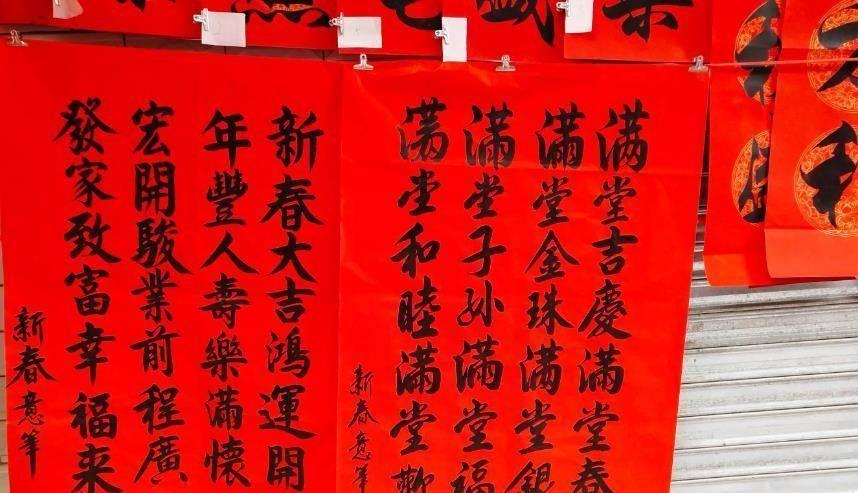 满堂吉慶满堂春
滿堂金珠满堂銀
滿堂子孙滿堂福
满堂和睦满堂歡
新春意筆
新春大吉鴻運開
年豐人壽樂滿懷
宏開駿業前程廣
發家致富幸福来
新春意筆